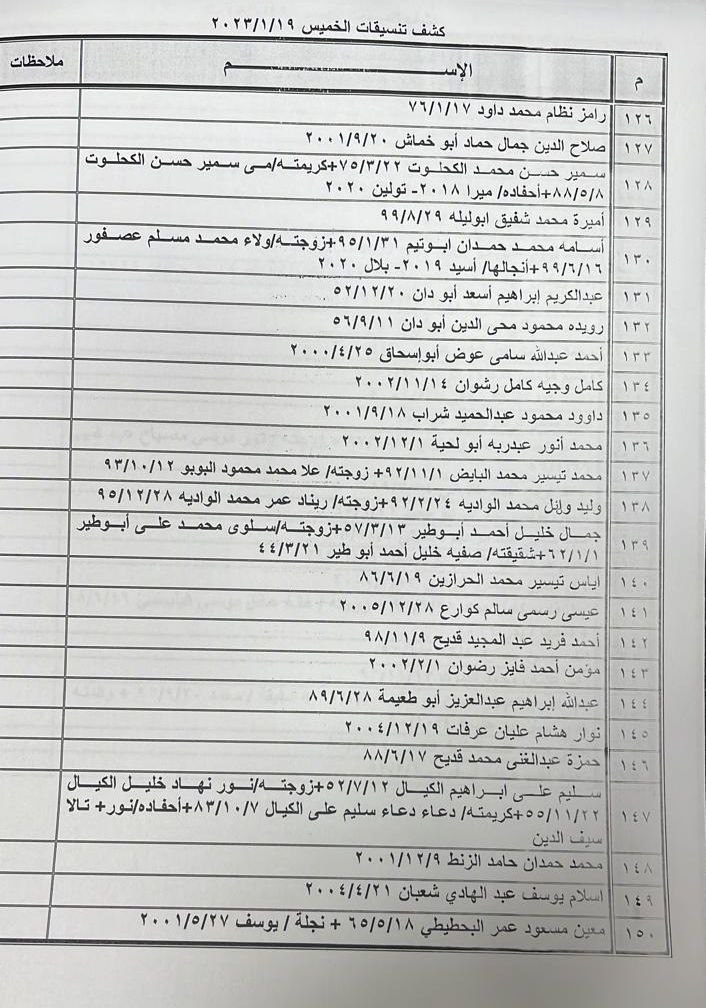 كشف تنسيقات الخميس ٢٠٢٣/١/١٩
م الإســـــــم ملاحظات
١٢٦ رامز نظام محمد داود ٧٦/١/١٧
١٢٧ صلاح الدين جمال حماد أبو خماش ٢٠٠١/٩/٢٠
١٢٨ سمير حسن محمد الكحلوت ٧٥/٣/٢٢+كريمته/مى سمير حسن الكحلوت
٨٨/٥/٨+أحفاده/ ميرا ٢٠١٨- تولين ٢٠٢٠
١٢٩ أميرة محمد شفيق ابوليله ٩٩/٨/٢٩
١٣٠ أسامه محمد حمدان ابوتيم ٩٥/١/٣١+زوجته/ولاء محمد مسلم عصفور
٩٩/٦/١٦+أنجالها/ أسيد ٢٠١٩- بلال ٢٠٢٠
١٣١ عبدالكريم إبراهيم أسعد أبو دان ٥٢/١٢/٢٠
١٣٢ رويده محمود محى الدين أبو دان ٥٦/٩/١١
١٣٣ أحمد عبدالله سامى عوض أبوإسحاق ٢٠٠٠/٤/٢٥
١٣٤ كامل وجيه كامل رشوان ٢٠٠٢/١١/١٤
١٣٥ داوود محمود عبدالحميد شراب ٢٠٠١/٩/١٨
١٣٦ محمد أنور عبدربه أبو لحية ٢٠٠٢/١٢/١
١٣٧ محمد تيسير محمد البايض ٩٢/١١/١+ زوجته/ علا محمد محمود البوبو ٩٣/١٠/١٢
١٣٨ وليد وائل محمد الواديه ٩٢/٢/٢٤+زوجته/ ريناد عمر محمد الواديه ٩٥/١٢/٢٨
١٣٩ جمال خليل أحمد أبوطير ٥٧/٣/١٣+زوجته/سلوى محمد على أبوطير
٦٢/١/١+شقيقته/ صفيه خليل أحمد أبو طير ٤٤/٣/٢١
١٤٠ اياس تيسير محمد الحرازين ٨٦/٦/١٩
١٤١ عيسى رسمى سالم كوارع ٢٠٠٥/١٢/٢٨
١٤٢ أحمد فريد عبد المجيد قديح ٩٨/١١/٩
١٤٣ مؤمن أحمد فايز رضوان ٢٠٠٢/٢/١
١٤٤ عبدالله إبراهيم عبدالعزيز أبو طعيمة ٨٩/٦/٢٨
١٤٥ نوار هشام عليان عرفات ٢٠٠٤/١٢/١٩
١٤٦ حمزة عبدالغنى محمد قديح ٨٨/٦/١٧
١٤٧ سليم على ابراهيم الكيال ٥٢/٧/١٢+زوجته/نور نهاد خليل الكيال
٥٥/١١/٢٢+كريمته/ دعاء دعاء سليم على الكيال ٨٣/١٠/٧+أحفاده/نور+ تالا
سيف الدين
١٤٨ محمد حمدان حامد الزنط ٢٠٠١/١٢/٩
١٤٩ اسلام يوسف عبد الهادي شعبان ٢٠٠٤/٤/٢١
١٥٠ معين مسعود عمر البحطيطي ٦٥/٥/١٨ + نجلة / يوسف ٢٠٠١/٥/٢٧